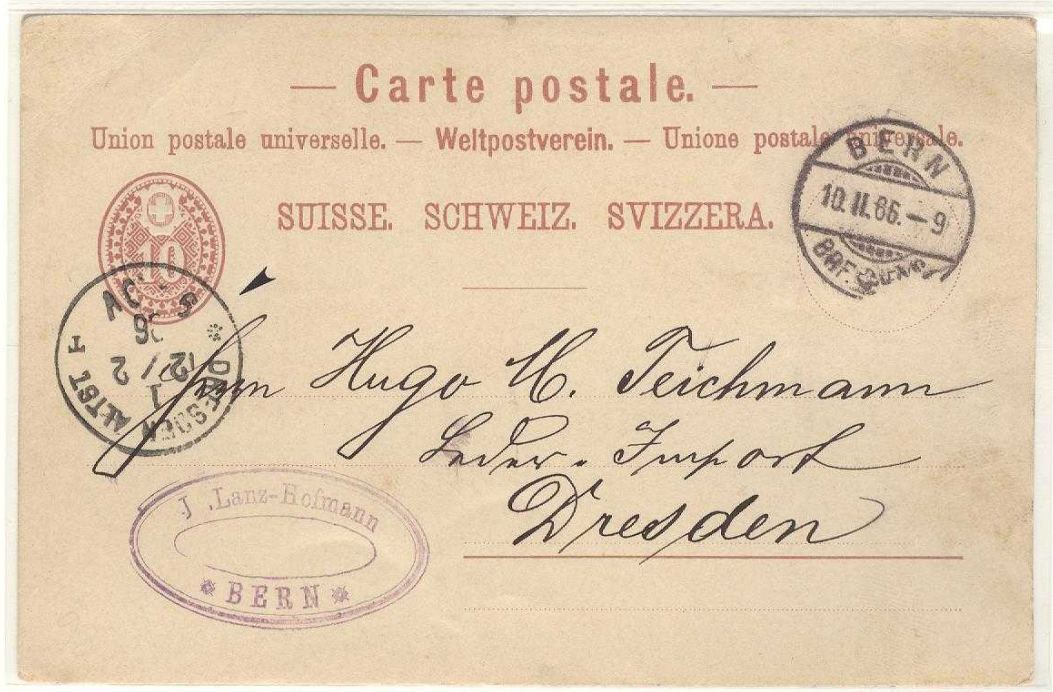 — Carte postale. —
Union postale universelle. — Weltpostverein. — Unione postale universale.
SUISSE. SCHWEIZ. SVIZZERA.
10
BERN
10. II. 86. – 9
BRF.
DRESDEN ALTST. I
12/2
86
Herrn Hugo M. Teichmann
Leder-Import
Dresden
J. Lanz-Hofmann
* BERN *